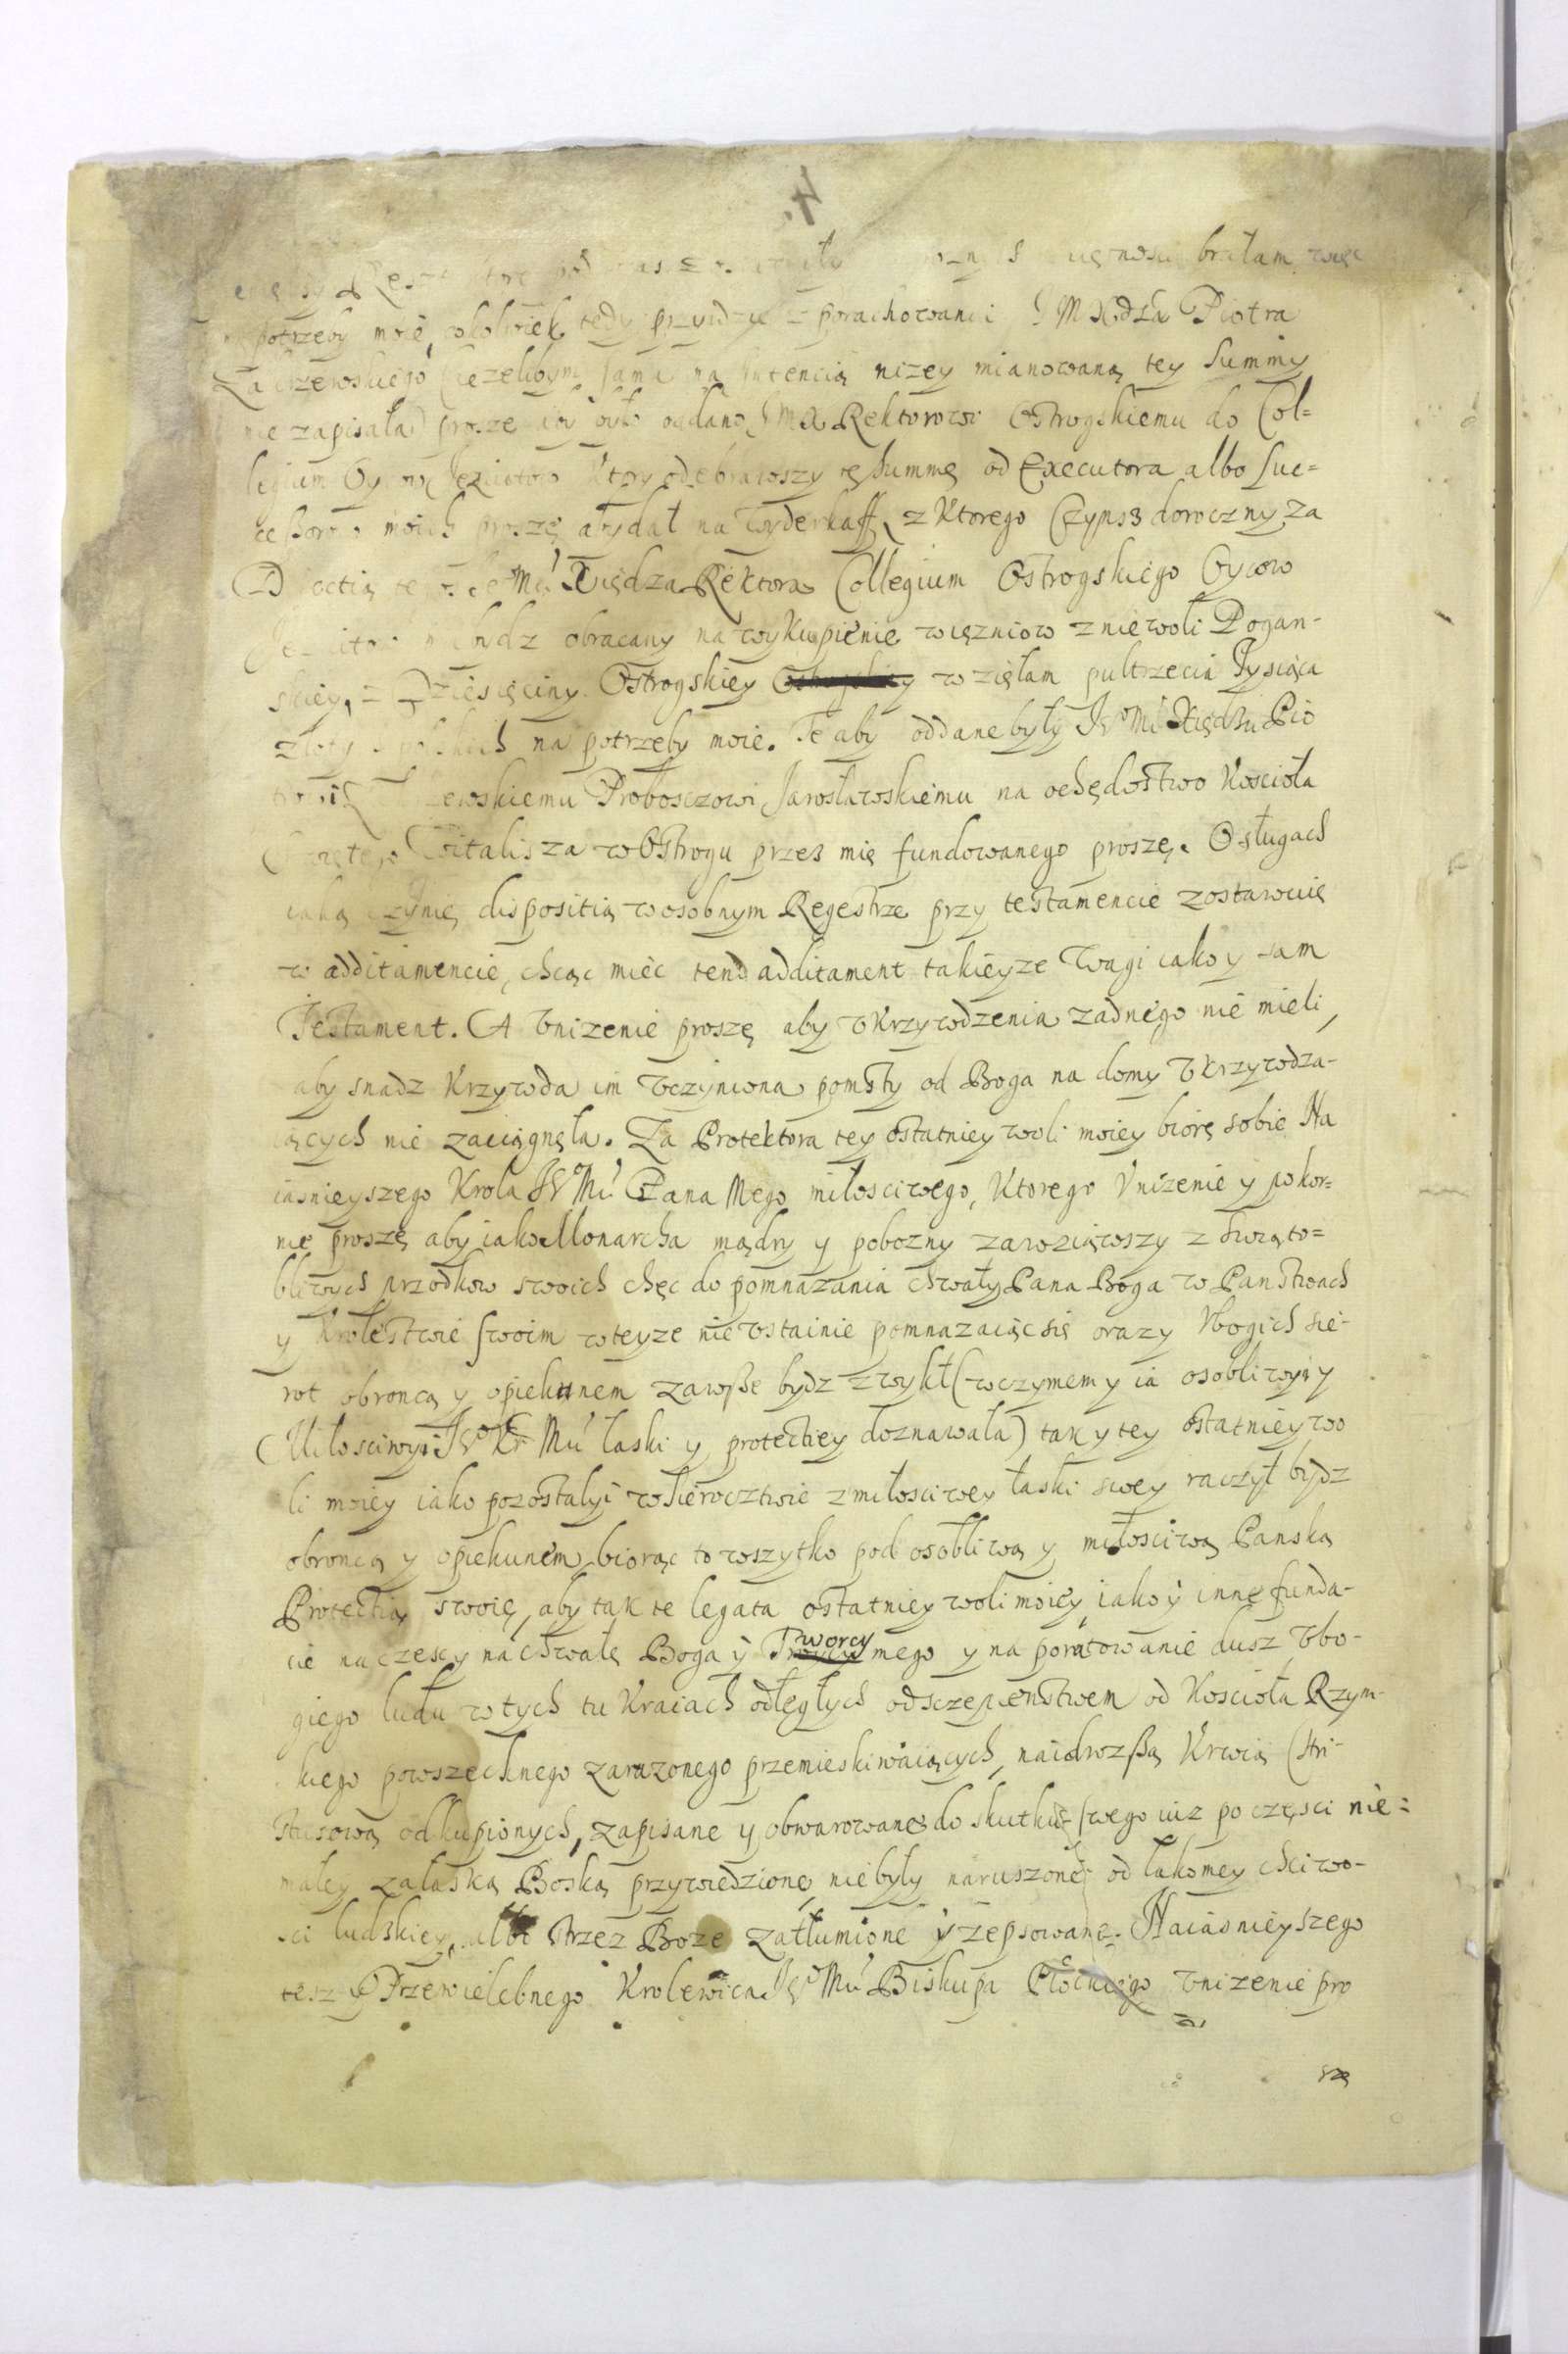 4.
brałam
potrzeby moie, cokolwiek tedy przyidzie z porachowania Piotra
nizey mianowaną tey Summy
nie zapisała) proszę aby było oddano Rektorowi Ostrogskiemu do Col=
legium Oycow Jezuitow ktory odebrawszy tę Summę od Executora albo Suc=
moich proszę aby dał na wyderkaff, z ktorego Czynsz doroczny za
Xiędza Rektora Collegium Ostrogskiego Oycow
bydz obracany na wykupienie więzniow z niewoli Pogan-
skiey, z Dziesięciny Ostrogskiey wzięłam pultrzecia Tysiąca
na potrzeby moie. Te aby oddane były Je° Mći Xiędzu Pio
Proboszczowi Jarosławskiemu na ochędostwo Koscioła
Witalisza w Ostrogu przez mię fundowanego proszę. O sługach
iaką czynię dispositią w osobnym Regestrze przy testamencie zostawuię
w additamencie, chcąc miec tend additament takieyze wagi iako y sam
Testament. A vnizenie proszę aby vkrzywdzenia zadnego nie mieli,
aby snadz Krzywda im vczyniona pomsty od Boga na domy vkrzywdza-
iących nie zaciągnęła. Za Protektora tey ostatniey woli moiey biorę sobie Na
iasnieyszego Krola Je° Mći Pana Mego miłosciwego, Ktorego vnizenie y pokor=
nie proszę aby iako Monarcha mądry y pobozny zawziąwszy z Swięto=
bliwych przodkow swoich chęc do pomnazania chwały Pana Boga w Panstwach
y Krolestwie swoim w teyze nievstainie pomnazaiąc się oraz y Vbogich sie-
rot obroncą y opiekunem zawsze bydz zwykł (w czymem y ia osobliwyiy
Miłosciwyi Je° Kr Mći łaski y protectiey doznawała) tak y tey ostatniey wo
li moiey iako pozostałyi w Sieroctwie z miłosciwey łaski swey raczył bydz
obroncą y opiekunem, biorąc to wszytko pod osobliwą y miłosciwą Panską
Protectią swoię, aby tak te legata ostatniey woli moiey, iako y inne funda-
cie na czesc y na chwałę Boga y Tworcy mego y na poratowanie dusz vbo-
giego ludu w tych tu Kraiach odległych odszczepienstwem od Koscioła Rzym-
kiego powszechnego zarazonego przemieskiwaiących, naidrozszą Krwią Chri-
stusową odkupionych, zapisane y obwarowane do skutku swego iuz po częsci nie=
małey za łaską Boską przywiedzione, nie były naruszone od łakomey chciwo-
sci ludskiey, albo strzez Boze zatłumione y zepsowane. Naiasnieyszego
tesz y Przewielebnego Krolewica Je° Mći Biskupa Płockiego vnizenie pro
szę